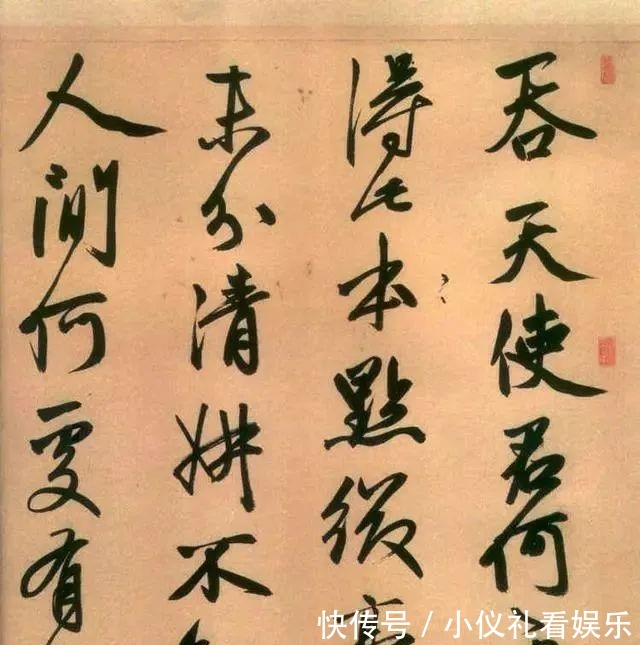 吞天使君何
得此本點綴
末分清妍不
人間何處有
快传号 / 小仪礼看娱乐